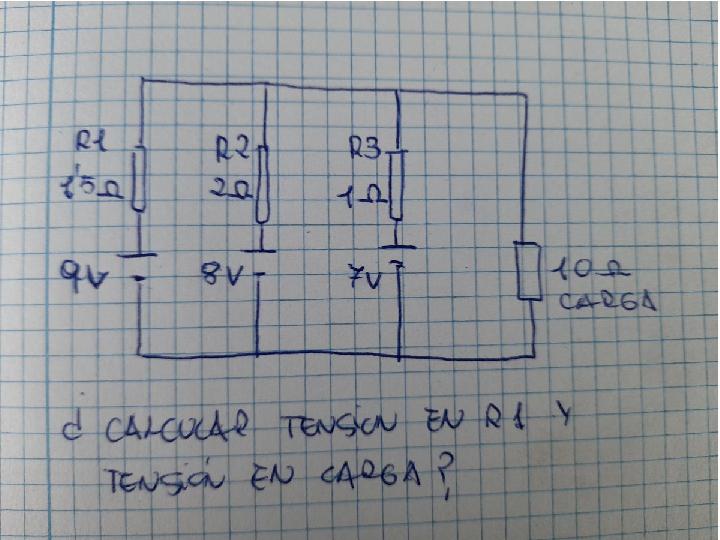 R1 R2 R3
1'5Ω 2Ω 1Ω
9V 8V 7V 10Ω
CARGA
¿ CALCULAR TENSIÓN EN R1 Y
TENSIÓN EN CARGA?